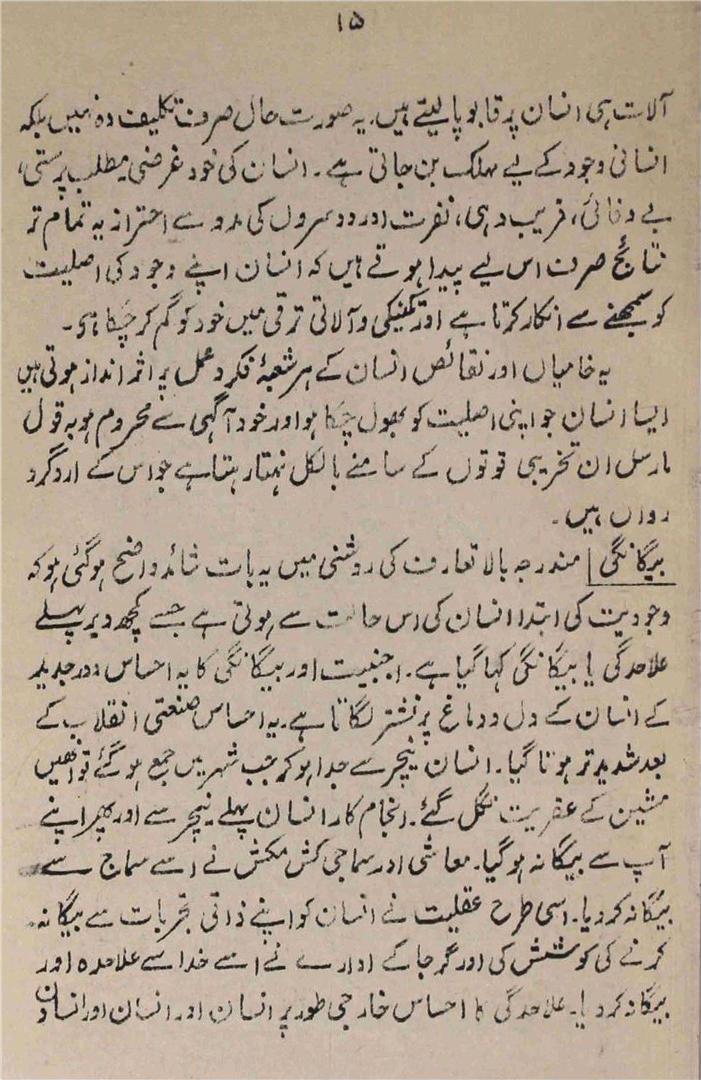 ۱۵
آلات ہی انسان پر قابو پالیتے ہیں۔ یہ صورت حال صرف تکلیف دہ نہیں بلکہ
انسانی وجود کے لیے مہلک بن جاتی ہے۔ انسان کی خود غرضی، مطلب پرستی،
بے وفائی، فریب دہی، نفرت اور دوسروں کی مدد سے احتراز یہ تمام تر
نتائج صرف اس لیے پیدا ہوتے ہیں کہ انسان اپنے وجود کی اصلیت
کو سمجھنے سے انکار کرتا ہے اور تکنیکی و آلاتی ترقی میں خود کو گم کر چکا ہے۔
یہ خامیاں اور نقائص انسان کے ہر شعبۂ فکر و عمل پر اثر انداز ہوتی ہیں
ایسا انسان جو اپنی اصلیت کو بھول چکا ہو اور خود آگہی سے محروم ہو بہ قول
مارسل ان تخریبی قوتوں کے سامنے بالکل نہتا رہتا ہے جو اس کے ارد گرد
رواں ہیں۔
بیگانگی| مندرجہ بالا تعارف کی روشنی میں یہ بات شائد واضح ہو گئی ہو کہ
وجودیت کی ابتدا انسان کی اس حالت سے ہوتی ہے جسے کچھ دیر پہلے
علاحدگی یا بیگانگی کہا گیا ہے۔ اجنبیت اور بیگانگی کا یہ احساس دور جدید
کے انسان کے دل و دماغ پر نشتر لگاتا ہے۔ یہ احساس صنعتی انقلاب کے
بعد شدید تر ہوتا گیا۔ انسان نیچر سے جدا ہو کر جب شہر میں جمع ہو گئے تو انھیں
مشین کے عفریت نگل گئے۔ انجام کار انسان پہلے نیچر سے اور پھر اپنے
آپ سے بیگانہ ہو گیا۔ معاشی اور سماجی کش مکش نے اسے سماج سے
بیگانہ کر دیا۔ اسی طرح عقلیت نے انسان کو اپنے ذاتی تجربات سے بیگانہ
کرنے کی کوشش کی اور گرجا کے ادارے نے اسے خدا سے علاحدہ اور
بیگانہ کر دیا۔ علاحدگی کا احساس خارجی طور پر انسان اور انسان اور انسان